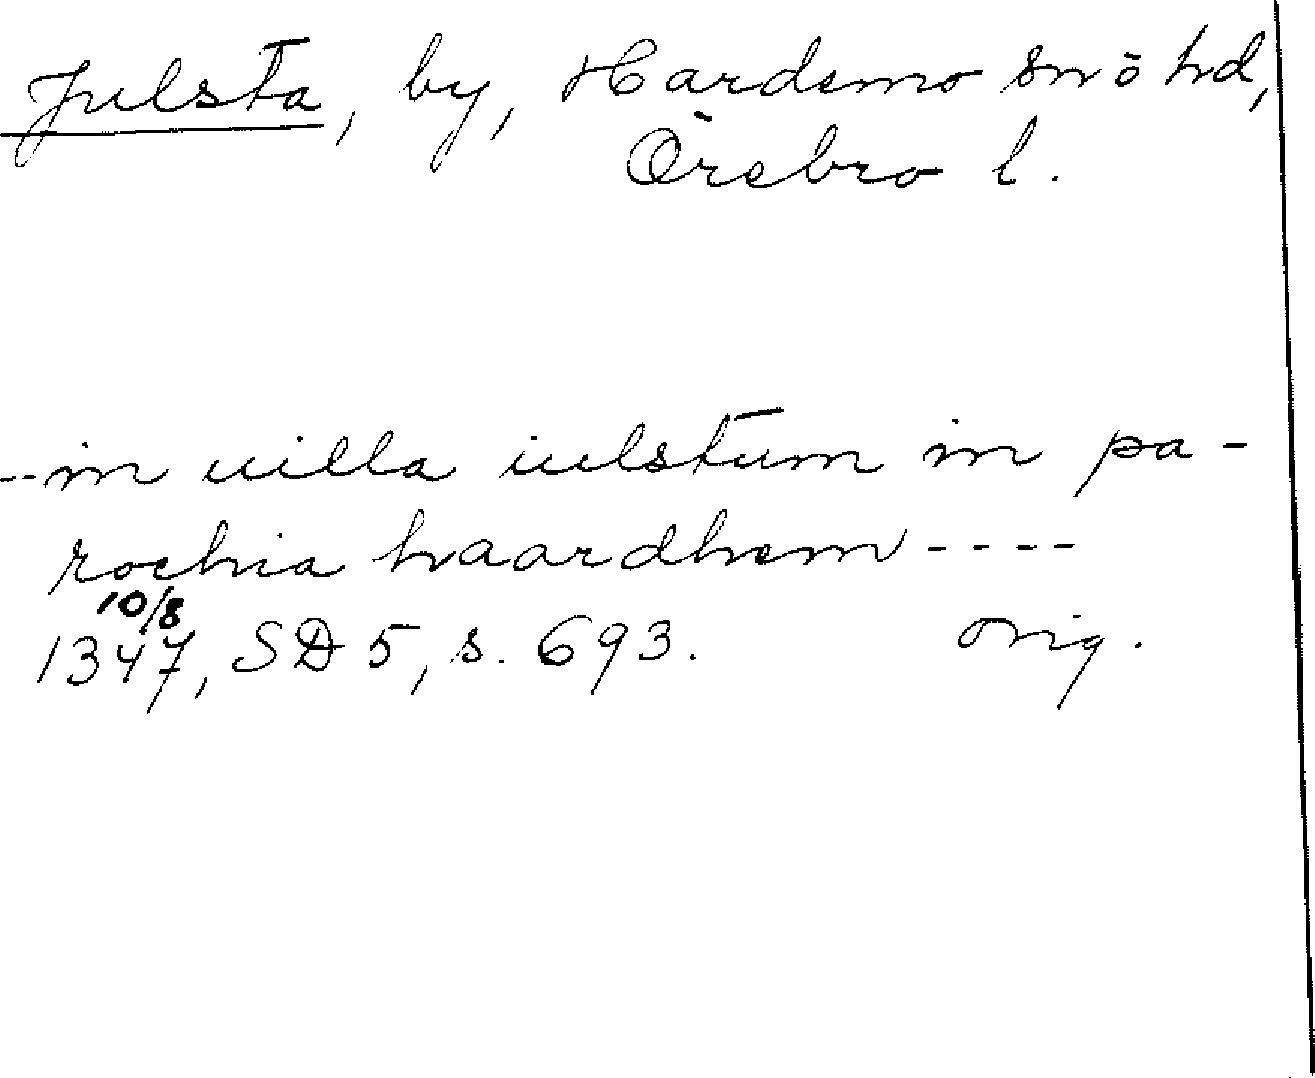 Julsta, by, Hardemo sn ō hd,
Örebro l.
--in uilla iulstum in pa-
rochia haardhem----
10/8
1347, SD 5, s. 693. Orig.